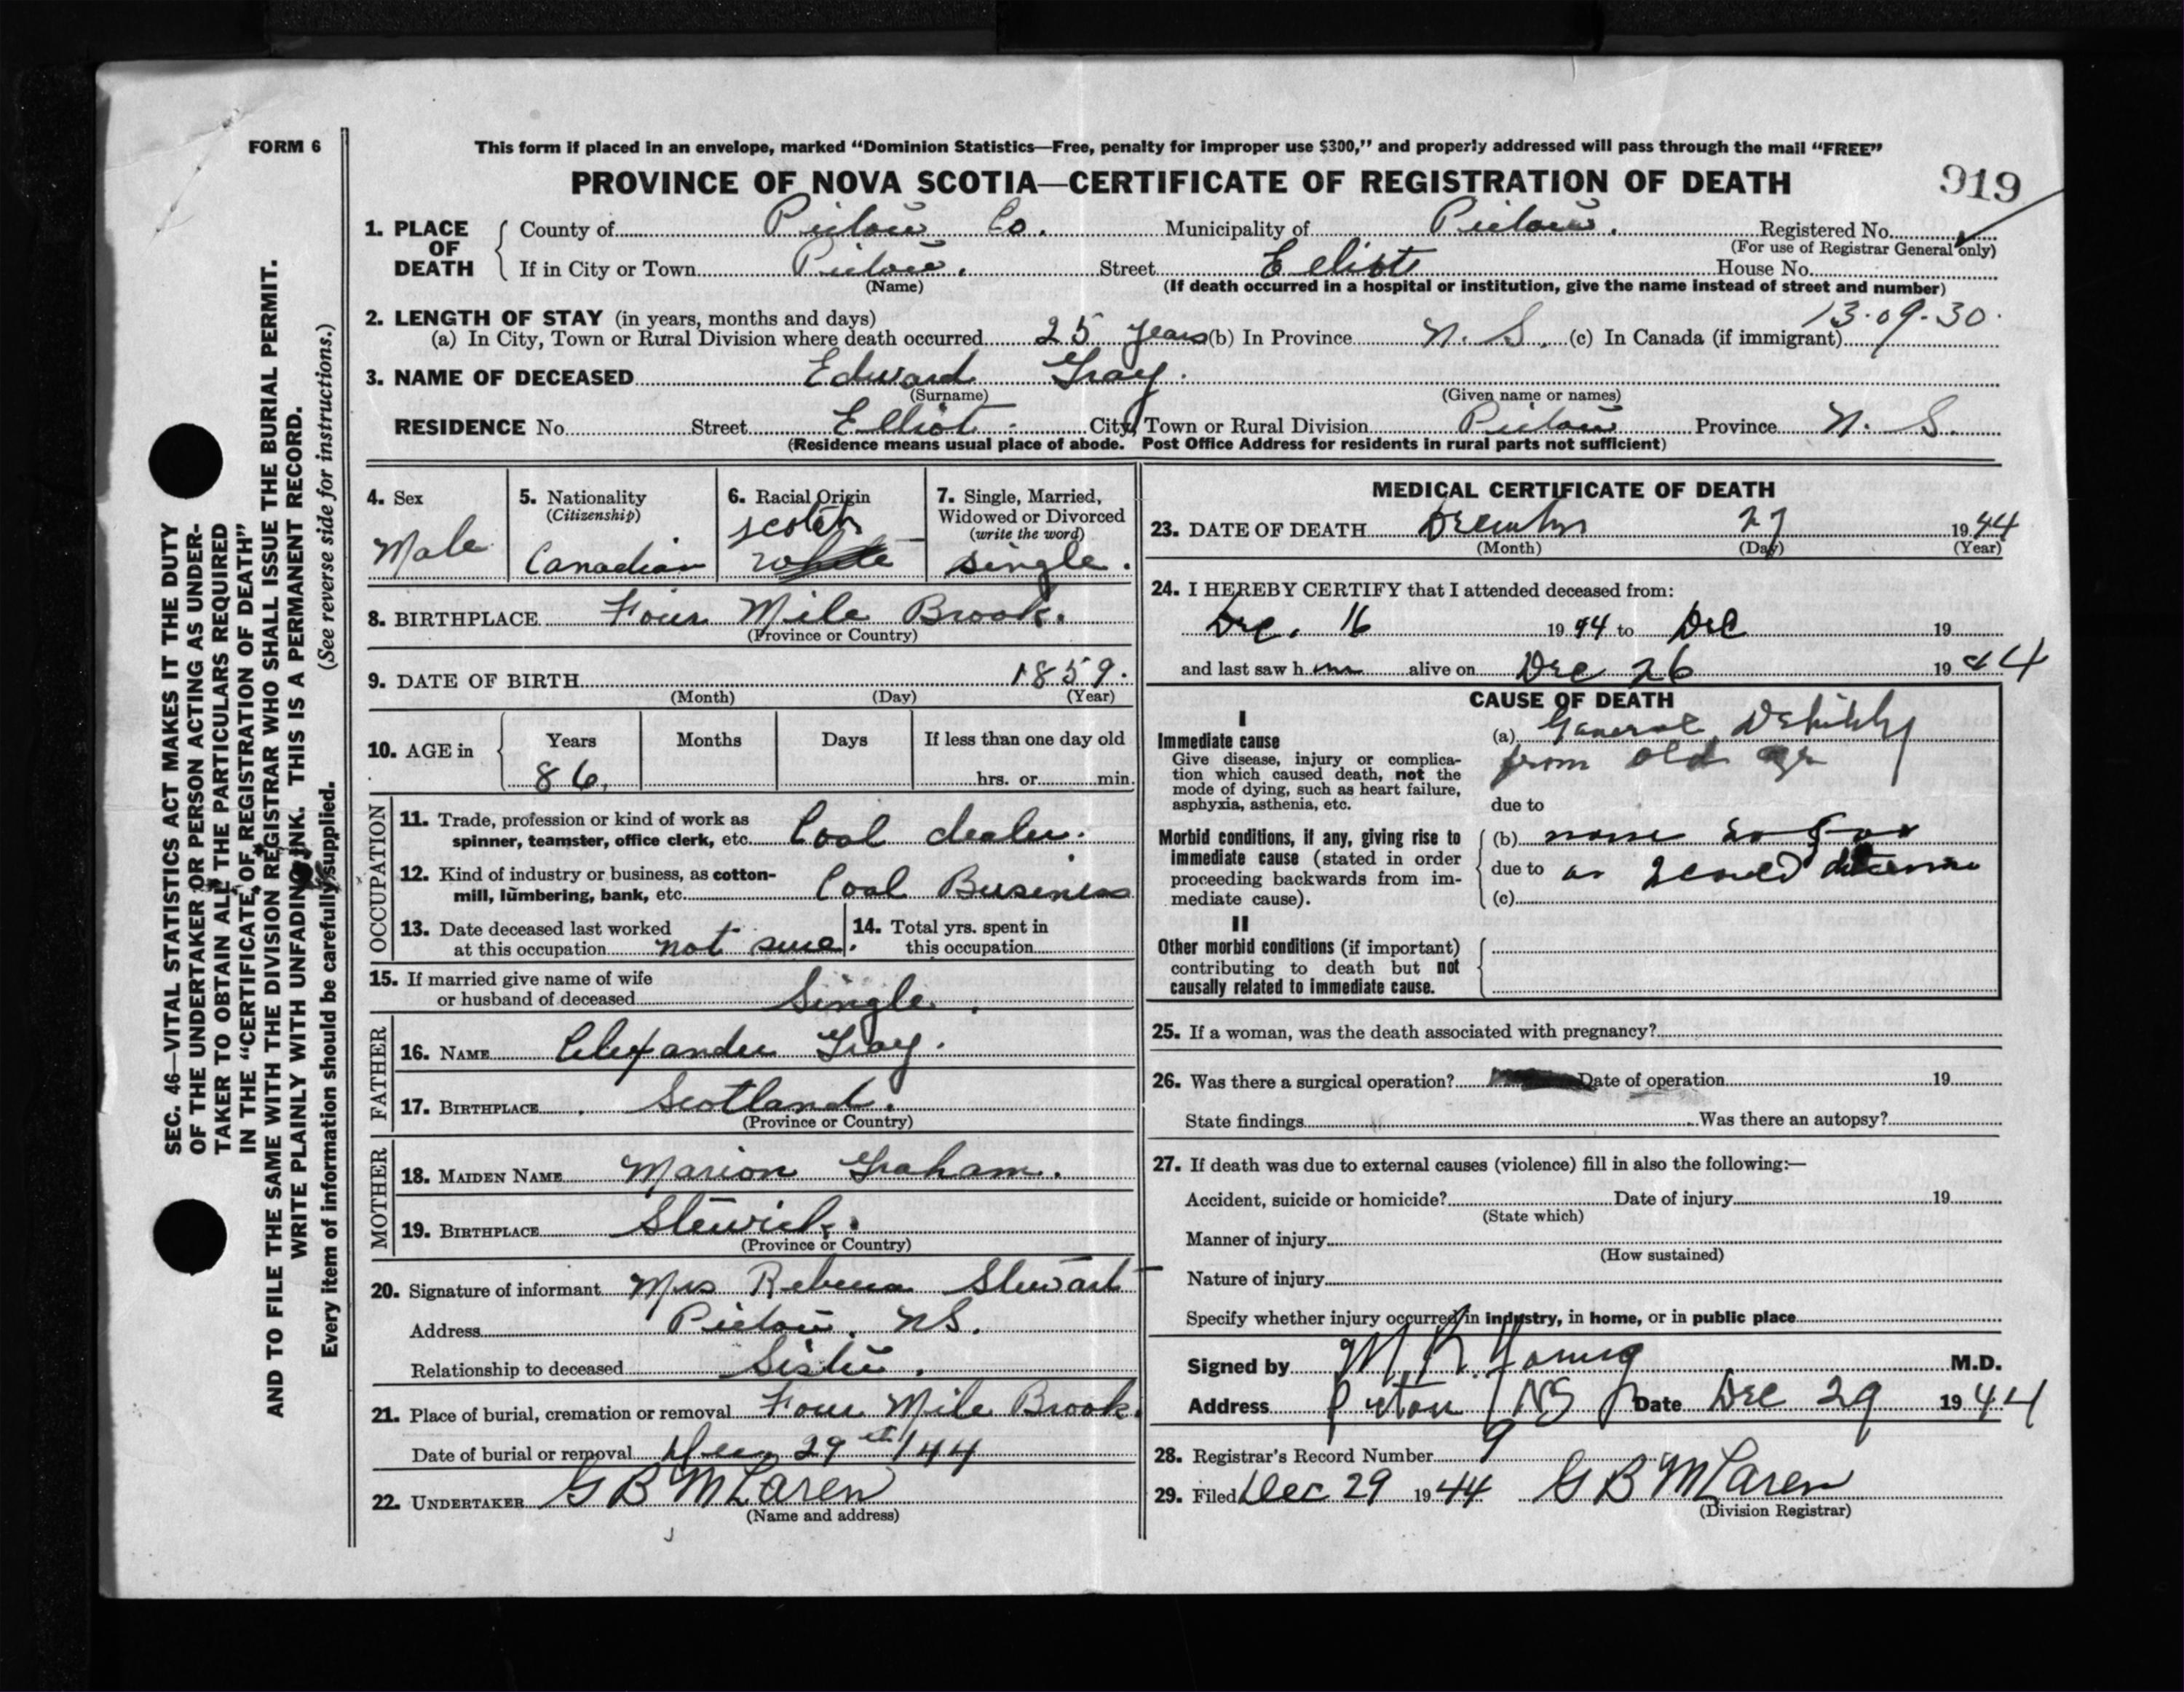 FORM 6
This form if placed in an envelope, marked "Dominion Statistics—Free, penalty for improper use $300," and properly addressed will pass through the mail "FREE"
PROVINCE OF NOVA SCOTIA—CERTIFICATE OF REGISTRATION OF DEATH
919
SEC. 46—VITAL STATISTICS ACT MAKES IT THE DUTY
OF THE UNDERTAKER OR PERSON ACTING AS UNDER-
TAKER TO OBTAIN ALL THE PARTICULARS REQUIRED
IN THE "CERTIFICATE OF REGISTRATION OF DEATH"
AND TO FILE THE SAME WITH THE DIVISION REGISTRAR WHO SHALL ISSUE THE BURIAL PERMIT.
WRITE PLAINLY WITH UNFADING INK. THIS IS A PERMANENT RECORD.
Every item of information should be carefully supplied. (See reverse side for instructions.)
1. PLACE OF DEATH
County of Pictou Co. Municipality of Pictou. Registered No.
(For use of Registrar General only)
If in City or Town Pictou. Street Elliott House No.
(Name) (If death occurred in a hospital or institution, give the name instead of street and number)
13-09-30.
2. LENGTH OF STAY (in years, months and days)
(a) In City, Town or Rural Division where death occurred 25 years (b) In Province N. S. (c) In Canada (if immigrant)
3. NAME OF DECEASED Edward Gray.
(Surname) (Given name or names)
RESIDENCE No. Street Elliot. City, Town or Rural Division Pictou Province N. S.
(Residence means usual place of abode. Post Office Address for residents in rural parts not sufficient)
4. Sex
Male
5. Nationality
(Citizenship)
Canadian
6. Racial Origin
Scotch
white
7. Single, Married,
Widowed or Divorced
(write the word)
Single.
8. BIRTHPLACE Four Mile Brook.
(Province or Country)
9. DATE OF BIRTH 1859.
(Month) (Day) (Year)
10. AGE in
Years Months Days If less than one day old
86. hrs. or min.
OCCUPATION
11. Trade, profession or kind of work as
spinner, teamster, office clerk, etc. Coal dealer.
12. Kind of industry or business, as cotton-
mill, lumbering, bank, etc. Coal Business
13. Date deceased last worked
at this occupation not sure.
14. Total yrs. spent in
this occupation
15. If married give name of wife
or husband of deceased Single.
FATHER
16. NAME Alexander Gray.
17. BIRTHPLACE Scotland.
(Province or Country)
MOTHER
18. MAIDEN NAME Marion Graham.
19. BIRTHPLACE
(Province or Country)
20. Signature of informant Mrs Rebecca Stewart
Address Pictou. N.S.
Relationship to deceased Sister.
21. Place of burial, cremation or removal Four Mile Brook.
Date of burial or removal Dec 29th/44
22. UNDERTAKER G B McLaren
(Name and address)
MEDICAL CERTIFICATE OF DEATH
23. DATE OF DEATH December 27 1944
(Month) (Day) (Year)
24. I HEREBY CERTIFY that I attended deceased from:
Dec. 16 1944 to Dec 19
and last saw him alive on Dec 26 1944
CAUSE OF DEATH
I
Immediate cause
Give disease, injury or complica-
tion which caused death, not the
mode of dying, such as heart failure,
asphyxia, asthenia, etc.
(a) General Debility
from old age
due to
Morbid conditions, if any, giving rise to
immediate cause (stated in order
proceeding backwards from im-
mediate cause).
(b) none so far
due to as I could determine
(c)
II
Other morbid conditions (if important)
contributing to death but not
causally related to immediate cause.
25. If a woman, was the death associated with pregnancy?
26. Was there a surgical operation? Date of operation 19
State findings Was there an autopsy?
27. If death was due to external causes (violence) fill in also the following:—
Accident, suicide or homicide? Date of injury 19
(State which)
Manner of injury
(How sustained)
Nature of injury
Specify whether injury occurred in industry, in home, or in public place
Signed by M R Young M.D.
Address Pictou NS Date Dec 29 1944
28. Registrar's Record Number 9
29. Filed Dec 29 1944 G B McLaren
(Division Registrar)